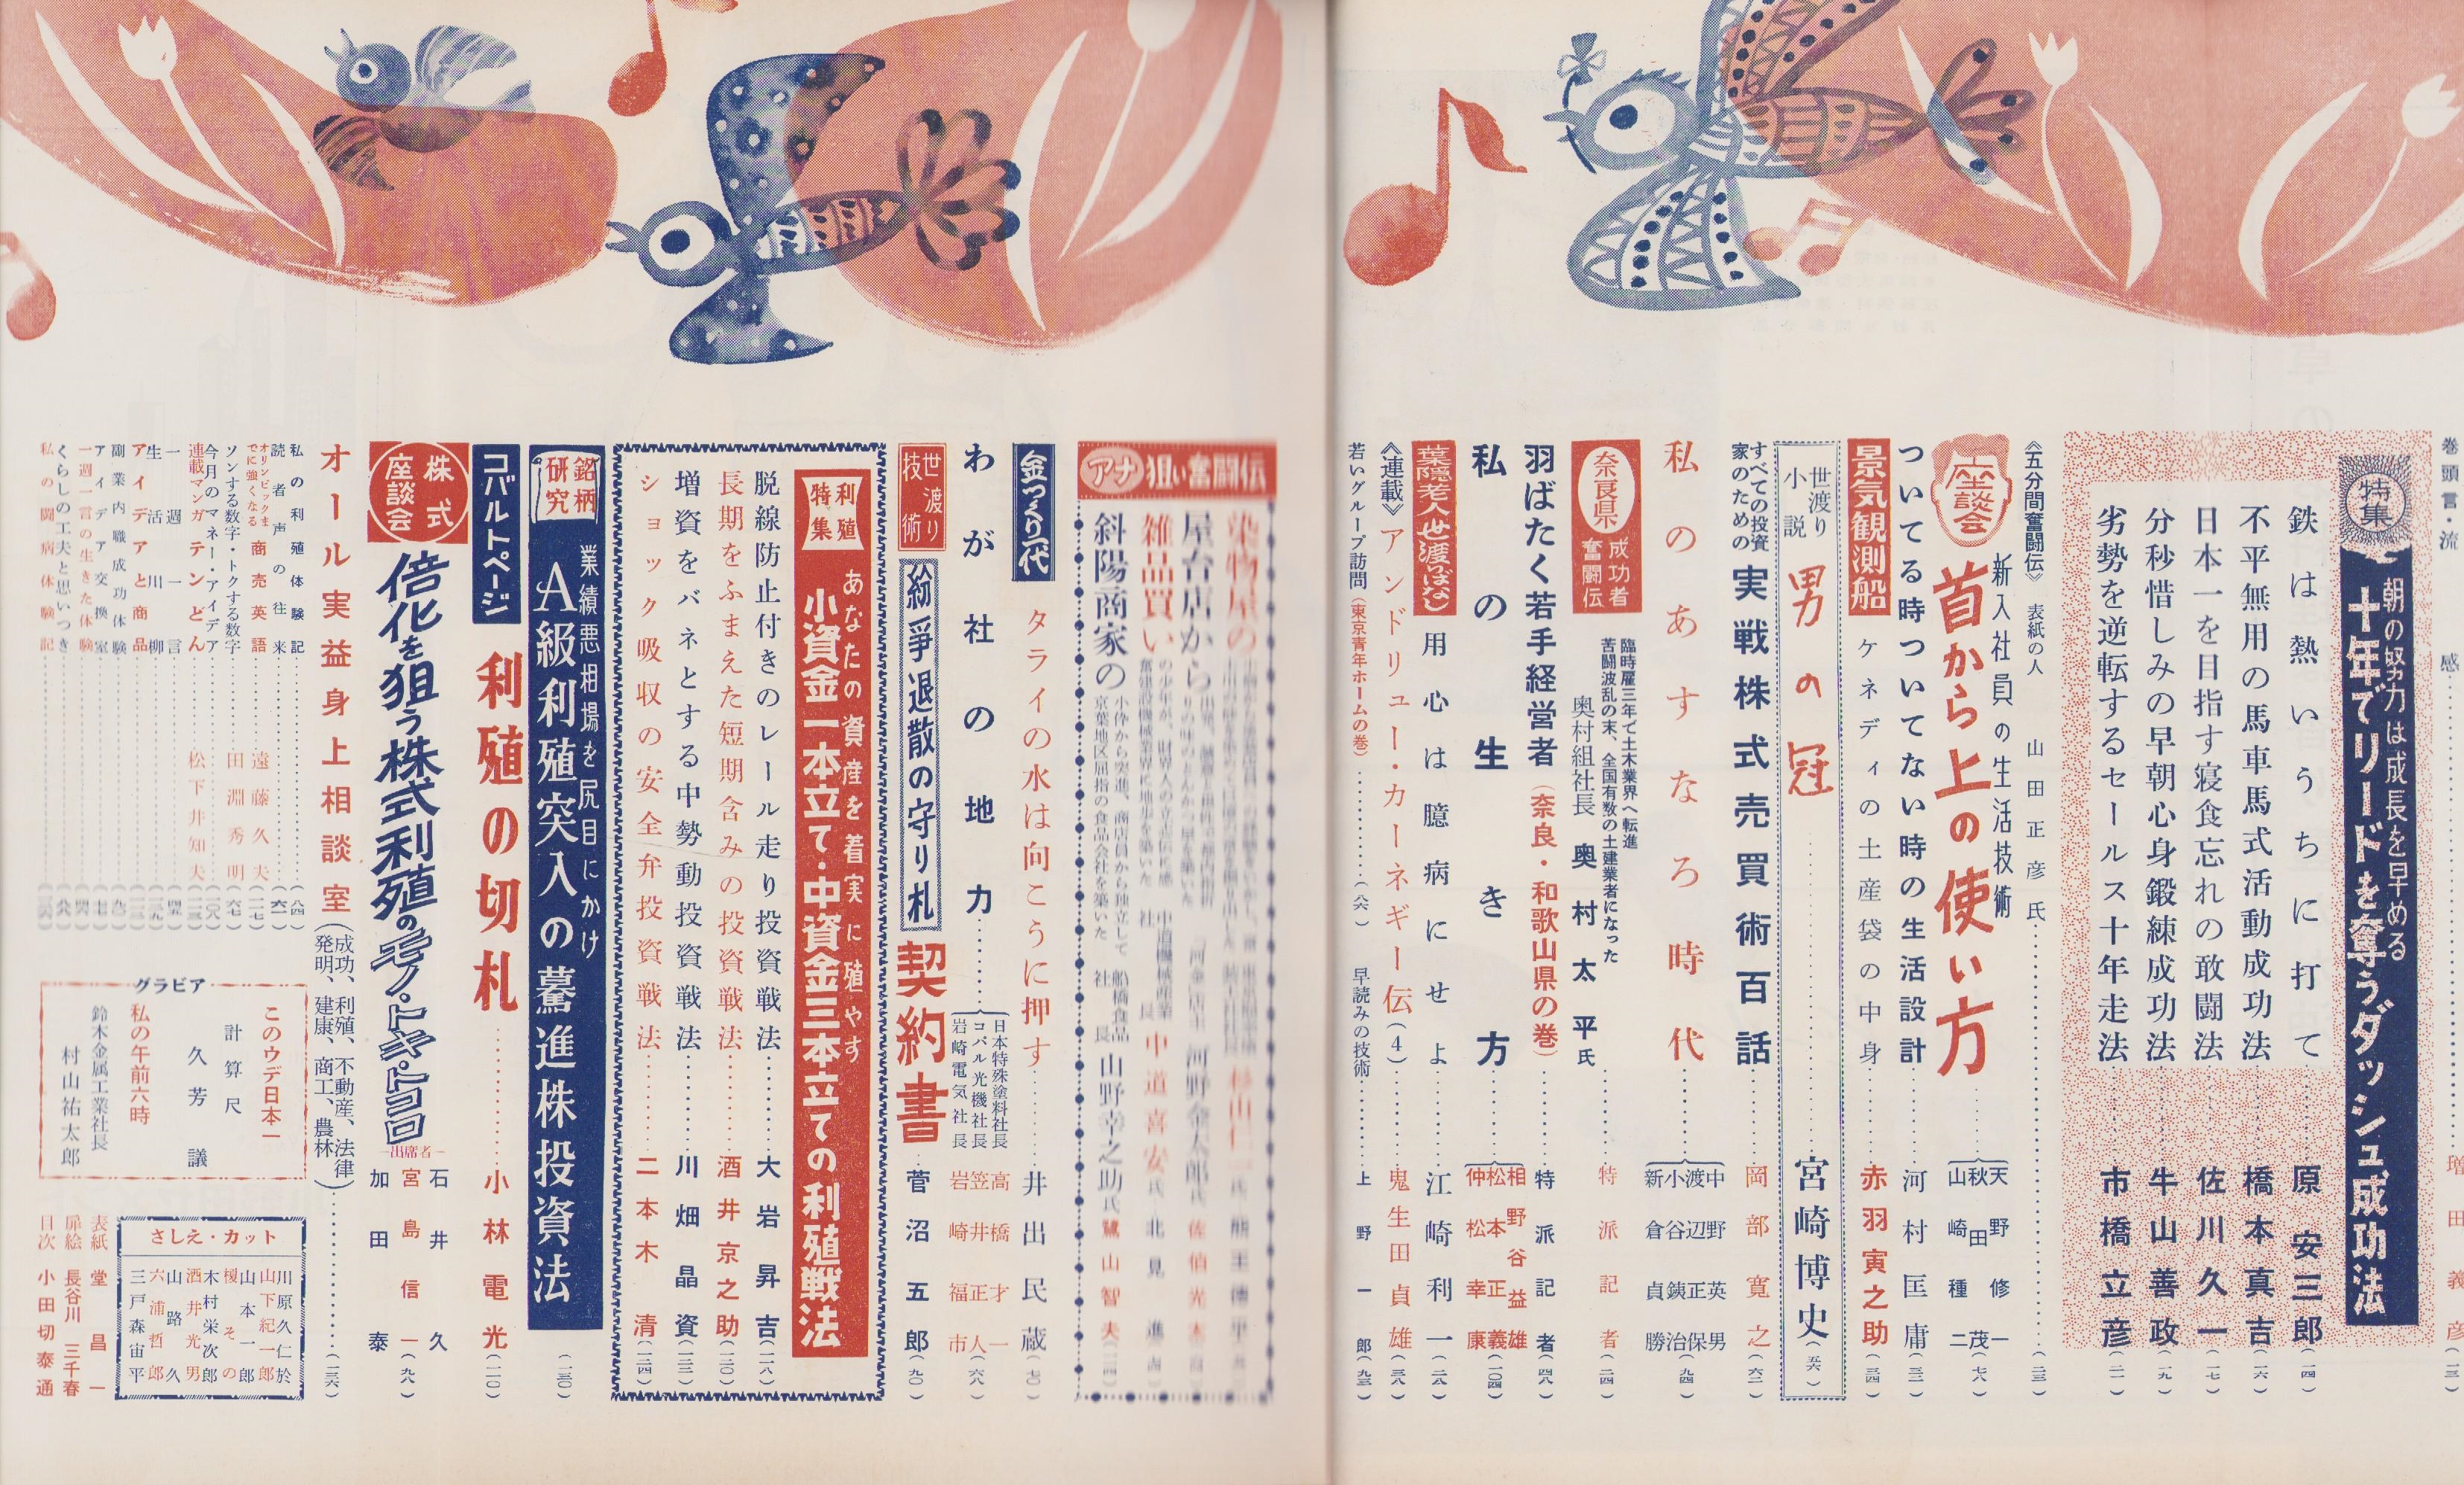 巻頭言・流感
特集
朝の努力は成長を早める
十年でリードを奪うダッシュ成功法
鉄は熱いうちに打て……原安三郎(一四)
不平無用の馬車馬式活動成功法……橋本真吉(一六)
日本一を目指す寝食忘れの敢闘法……佐川久一(一七)
分秒惜しみの早朝心身鍛練成功法……牛山善政(一九)
劣勢を逆転するセールス十年走法……市橋立彦(二一)
《五分間奮闘伝》 表紙の人 山田正彦氏……(二三)
座談会
新入社員の生活技術
首から上の使い方……天野修一 秋田茂 山崎種二(七八)
ついてる時ついてない時の生活設計……河村匡庸(三二)
景気観測船
ケネディの土産袋の中身……赤羽寅之助(三四)
世渡り小説
男の冠……宮崎博史(五六)
すべての投資家のための
実戦株式売買術百話……岡部寛之(六二)
私のあすなろ時代……中野英男 渡辺正保 小谷銕治 新倉貞勝(九四)
奈良県
成功者奮闘伝
臨時雇三年で土木業界へ転進
苦闘波乱の末、全国有数の土建業者になった
奥村組社長 奥村太平氏……特派記者(二四)
羽ばたく若手経営者(奈良・和歌山県の巻)……特派記者(四八)
私の生き方……相野谷益雄 松本正義 仲松幸康(一〇四)
葉隠老人世渡りばなし
用心は臆病にせよ……江崎利一(二八)
《連載》アンドリュー・カーネギー伝(4)……鬼生田貞雄(三八)
若いグループ訪問(東京青年ホームの巻)……(八六)
早読みの技術……上野一郎(九三)
アナ狙い奮闘伝
染物屋の
屋台店から
雑品買い
斜陽商家の
小伜から突進、商店員から独立して
京葉地区屈指の食品会社を築いた
船橋食品社長 山野幸之助氏 鷲山智夫
中道機械産業社長 中道喜安氏 北見進
河野金太郎氏
金つくり一代
タライの水は向こうに押す……井出民蔵(七〇)
わが社の地力……日本特殊塗料社長 高橋才一 コパル光機社長 笠井正人 岩崎電気社長 岩崎福市(六八)
世渡り技術
紛争退散の守り札
契約書……菅沼五郎(九〇)
利殖特集
あなたの資産を着実に殖やす
小資金一本立て・中資金三本立ての利殖戦法
脱線防止付きのレール走り投資戦法……大岩昇吉(一一八)
長期をふまえた短期含みの投資戦法……酒井京之助(一二〇)
増資をバネとする中勢動投資戦法……川畑晶資(一二二)
ショック吸収の安全弁投資戦法……二本木清(一二四)
銘柄研究
業績悪相場を尻目にかけ
A級利殖突入の驀進株投資法(一三〇)
コバルトページ
利殖の切札……小林電光(一一〇)
株式座談会
倍化を狙う株式利殖のモノ・トキ・トコロ
―出席者―
石井久
宮島信一
加田泰
(九八)
オール実益身上相談室(成功、利殖、不動産、法律 発明、建康、商工、農林)……(一三六)
私の利殖体験記……(八四)
読者声の往来……(六一)
オリンピックまでに強くなる商売英語……遠藤久夫(一二七)
ソンする数字・トクする数字……田淵秀明(六七)
今月のマネー・アイデア……(一〇八)
連載マンガ テンどん……松下井知夫
一週一言
生活川柳
アイデアと商品
副業内職成功体験
アイディア交換室
一週一言の生きた体験
くらしの工夫と思いつき
私の闘病体験記
グラビア
このウデ日本一
計算尺
久芳議
私の午前六時
鈴木金属工業社長
村山祐太郎
さしえ・カット
川原久仁於
山下紀一郎
山本一郎
榎その
木村栄次郎
酒井光男
山路久
六浦哲郎
三戸森宙平
表紙 堂昌一
扉絵 長谷川三千春
目次 小田切泰通